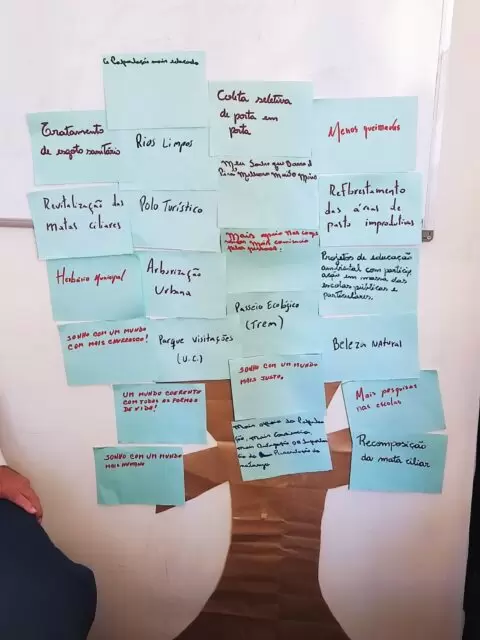 População mais educada
Coleta seletiva
de porta em
porta
Menos queimadas
Tratamento
de esgoto sanitário
Rios Limpos
Meu Sonho que Barra d
Piraí Melhore Muito Mais
Reflorestamento
das áreas de
pasto improdutivas
Revitalização das
matas ciliares
Polo Turístico
Mais apoio nas
pelas pessoas!
Projetos de educação
ambiental com particip
ação em massa das
escolas públicas e
particulares.
Herbário Municipal
Arborização
Urbana
Passeio Ecológico
(Trem)
SONHO COM UM MUNDO
COM MAIS
Parque visitações
(U.C.)
Beleza Natural
SONHO COM UM MUNDO
MAIS JUSTO.
UM MUNDO COERENTE
COM TODAS AS FORMAS
DE VIDA!
Mais pesquisas
nas escolas
Mais apoio da Popula
ção, mais
mais
SONHO COM UM MUNDO
MAIS HUMANO
Recomposição
da mata ciliar